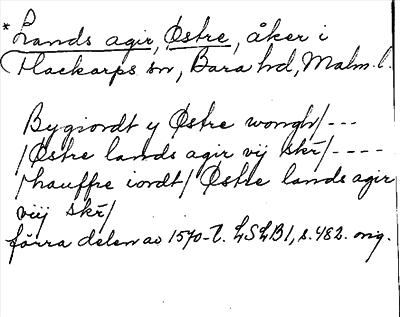 *Lands agir, Østre, åker i
Flackarps sn, Bara hd, Malm. l.
Bygiordt y Østre wongh/---
/Østre lands agir vij skr̄/----
/hauffre iordt/ Østre lands agir
viij skr̄/
förra delen av 1570-t. LSLB1, s. 482. orig.